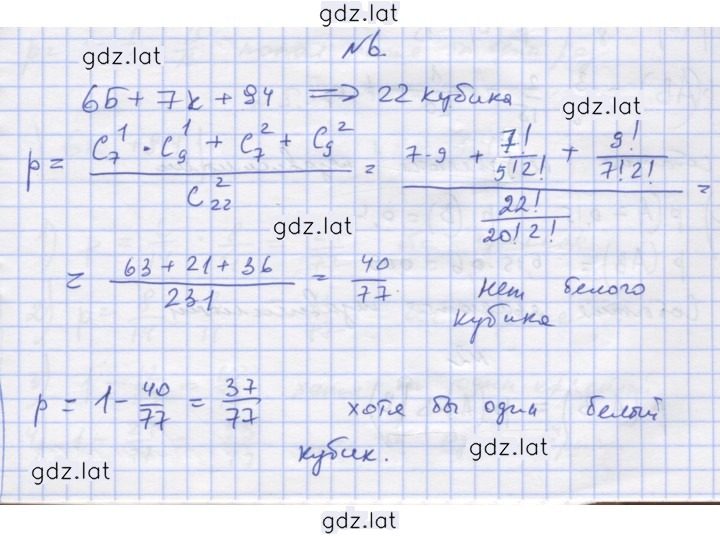 gdz.lat
№6.
gdz.lat
6Б + 7К + 9Ч ⟹ 22 кубика
gdz.lat
p = (C₇¹ · C₉¹ + C₇² + C₉²) / C₂₂² = (7·9 + 7!/(5!2!) + 9!/(7!2!)) / (22!/(20!2!)) =
gdz.lat
= (63 + 21 + 36) / 231 = 40/77. Нет белого
кубика
p = 1 - 40/77 = 37/77 хотя бы один белый
кубик.
gdz.lat
gdz.lat
gdz.lat